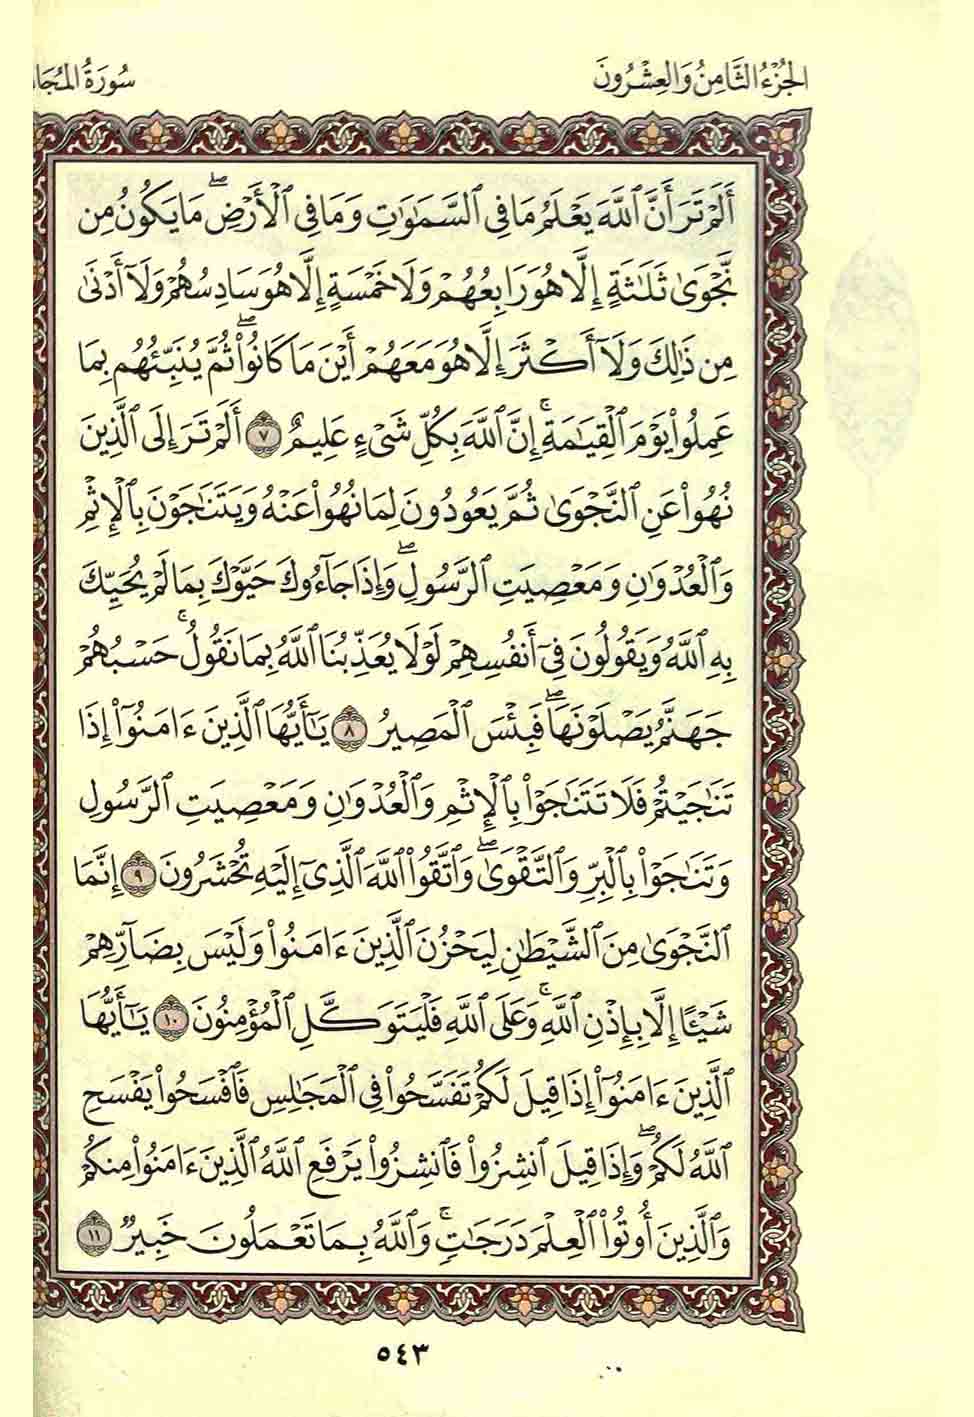 الجُزْءُ الثَّامِنُ وَالعِشْرُونَ
سُورَةُ
أَلَمْ تَرَ أَنَّ ٱللَّهَ يَعْلَمُ مَا فِي ٱلسَّمَٰوَٰتِ وَمَا فِي ٱلْأَرْضِۖ مَا يَكُونُ مِن
نَّجْوَىٰ ثَلَٰثَةٍ إِلَّا هُوَ رَابِعُهُمْ وَلَا خَمْسَةٍ إِلَّا هُوَ سَادِسُهُمْ وَلَآ أَدْنَىٰ
مِن ذَٰلِكَ وَلَآ أَكْثَرَ إِلَّا هُوَ مَعَهُمْ أَيْنَ مَا كَانُوا۟ۖ ثُمَّ يُنَبِّئُهُم بِمَا
عَمِلُوا۟ يَوْمَ ٱلْقِيَٰمَةِۚ إِنَّ ٱللَّهَ بِكُلِّ شَىْءٍ عَلِيمٌ ٧ أَلَمْ تَرَ إِلَى ٱلَّذِينَ
نُهُوا۟ عَنِ ٱلنَّجْوَىٰ ثُمَّ يَعُودُونَ لِمَا نُهُوا۟ عَنْهُ وَيَتَنَٰجَوْنَ بِٱلْإِثْمِ
وَٱلْعُدْوَٰنِ وَمَعْصِيَتِ ٱلرَّسُولِۖ وَإِذَا جَآءُوكَ حَيَّوْكَ بِمَا لَمْ يُحَيِّكَ
بِهِ ٱللَّهُ وَيَقُولُونَ فِىٓ أَنفُسِهِمْ لَوْلَا يُعَذِّبُنَا ٱللَّهُ بِمَا نَقُولُۚ حَسْبُهُمْ
جَهَنَّمُ يَصْلَوْنَهَاۖ فَبِئْسَ ٱلْمَصِيرُ ٨ يَٰٓأَيُّهَا ٱلَّذِينَ ءَامَنُوٓا۟ إِذَا
تَنَٰجَيْتُمْ فَلَا تَتَنَٰجَوْا۟ بِٱلْإِثْمِ وَٱلْعُدْوَٰنِ وَمَعْصِيَتِ ٱلرَّسُولِ
وَتَنَٰجَوْا۟ بِٱلْبِرِّ وَٱلتَّقْوَىٰۖ وَٱتَّقُوا۟ ٱللَّهَ ٱلَّذِىٓ إِلَيْهِ تُحْشَرُونَ ٩ إِنَّمَا
ٱلنَّجْوَىٰ مِنَ ٱلشَّيْطَٰنِ لِيَحْزُنَ ٱلَّذِينَ ءَامَنُوا۟ وَلَيْسَ بِضَآرِّهِمْ
شَيْـًٔا إِلَّا بِإِذْنِ ٱللَّهِۚ وَعَلَى ٱللَّهِ فَلْيَتَوَكَّلِ ٱلْمُؤْمِنُونَ ١٠ يَٰٓأَيُّهَا
ٱلَّذِينَ ءَامَنُوٓا۟ إِذَا قِيلَ لَكُمْ تَفَسَّحُوا۟ فِى ٱلْمَجَٰلِسِ فَٱفْسَحُوا۟ يَفْسَحِ
ٱللَّهُ لَكُمْۖ وَإِذَا قِيلَ ٱنشُزُوا۟ فَٱنشُزُوا۟ يَرْفَعِ ٱللَّهُ ٱلَّذِينَ ءَامَنُوا۟ مِنكُمْ
وَٱلَّذِينَ أُوتُوا۟ ٱلْعِلْمَ دَرَجَٰتٍۚ وَٱللَّهُ بِمَا تَعْمَلُونَ خَبِيرٌ ١١
٥٤٣